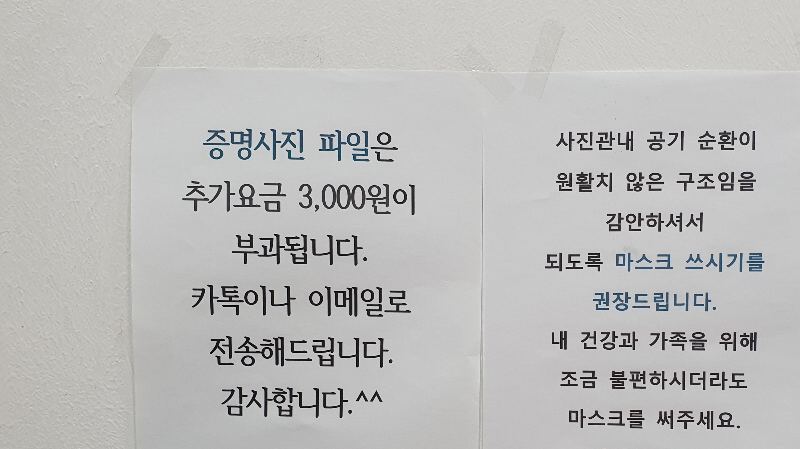 증명사진 파일은
추가요금 3,000원이
부과됩니다.
카톡이나 이메일로
전송해드립니다.
감사합니다.^^
사진관내 공기 순환이
원활치 않은 구조임을
감안하셔서
되도록 마스크 쓰시기를
권장드립니다.
내 건강과 가족을 위해
조금 불편하시더라도
마스크를 써주세요.